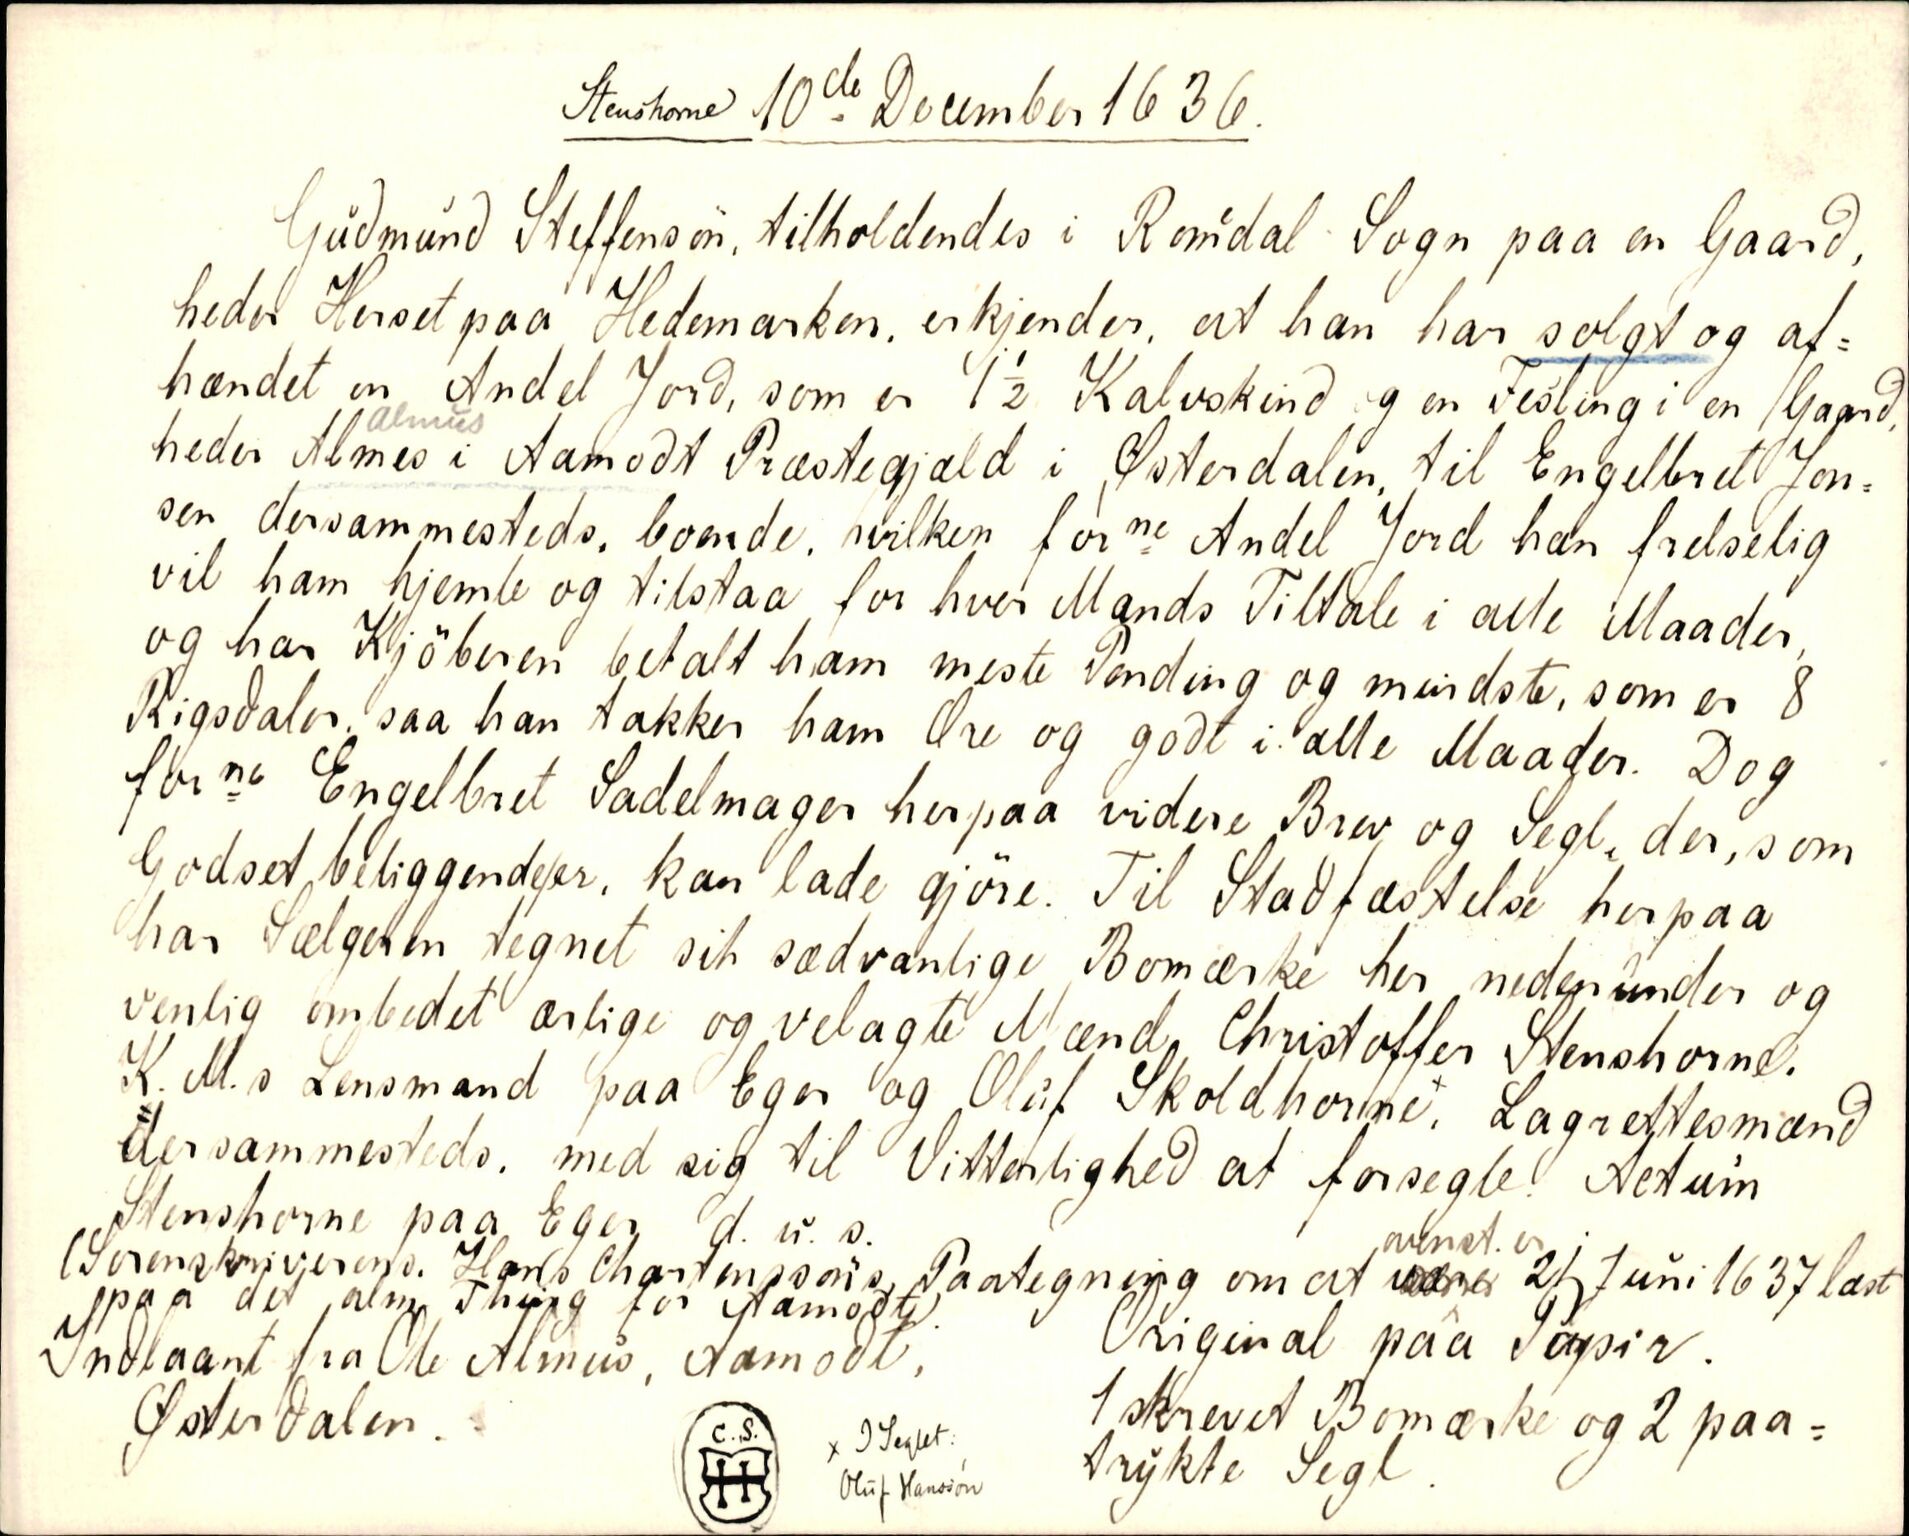 Stenshorne 10de December 1636.
Gudmund Steffensön, tilholdendes i Romdal Sogn paa en Gaard,
heder Herset paa Hedemarken, erkjender, at han har solgt og af=
hændet en Andel Jord, som er 1½ Kalvskind og en Fesling i en Gaard,
Almus
heder Almes i Aamodt Præstegjæld i Østerdalen, til Engelbret Jon=
sen dersammesteds, boende, hvilken forne Andel Jord han frelselig
vil ham hjemle og tilstaa for hver Mands Tiltale i alle Maader,
og har Kjöberen betalt ham meste Pending og mindste, som er 8
Rigsdaler, saa han takker ham Ære og godt i alle Maader. Dog
forne Engelbret Sadelmager herpaa videre Brev og Segl, der, som
Godset beliggende er, kan lade gjöre. Til Stadfæstelse herpaa
har Sælgeren tegnet sit sædvanlige Bomærke her nedenunder og
venlig ombedet ærlige og velagte Mænd, Christoffer Stenshorne,
K. M.s Lensmand paa Eger og Oluf Skoldhorne x, Lagrettesmænd
dersammesteds, med sig til Vitterlighed at forsegle. Actum
Stenshorne paa Eger d. u. s.
ovenst. er
(Sorenskriverens, Hans Chartenssöns, Paategning om at 21 Juni 1637 læst
paa det alm. Thing for Aamodt.
Indlaant fra Ole Almus, Aamodt,
Østerdalen.
Original paa Papir.
1 skrevet Bomærke og 2 paa=
trykte Segl.
C. S.
x I Seglet:
Oluf Hanssön